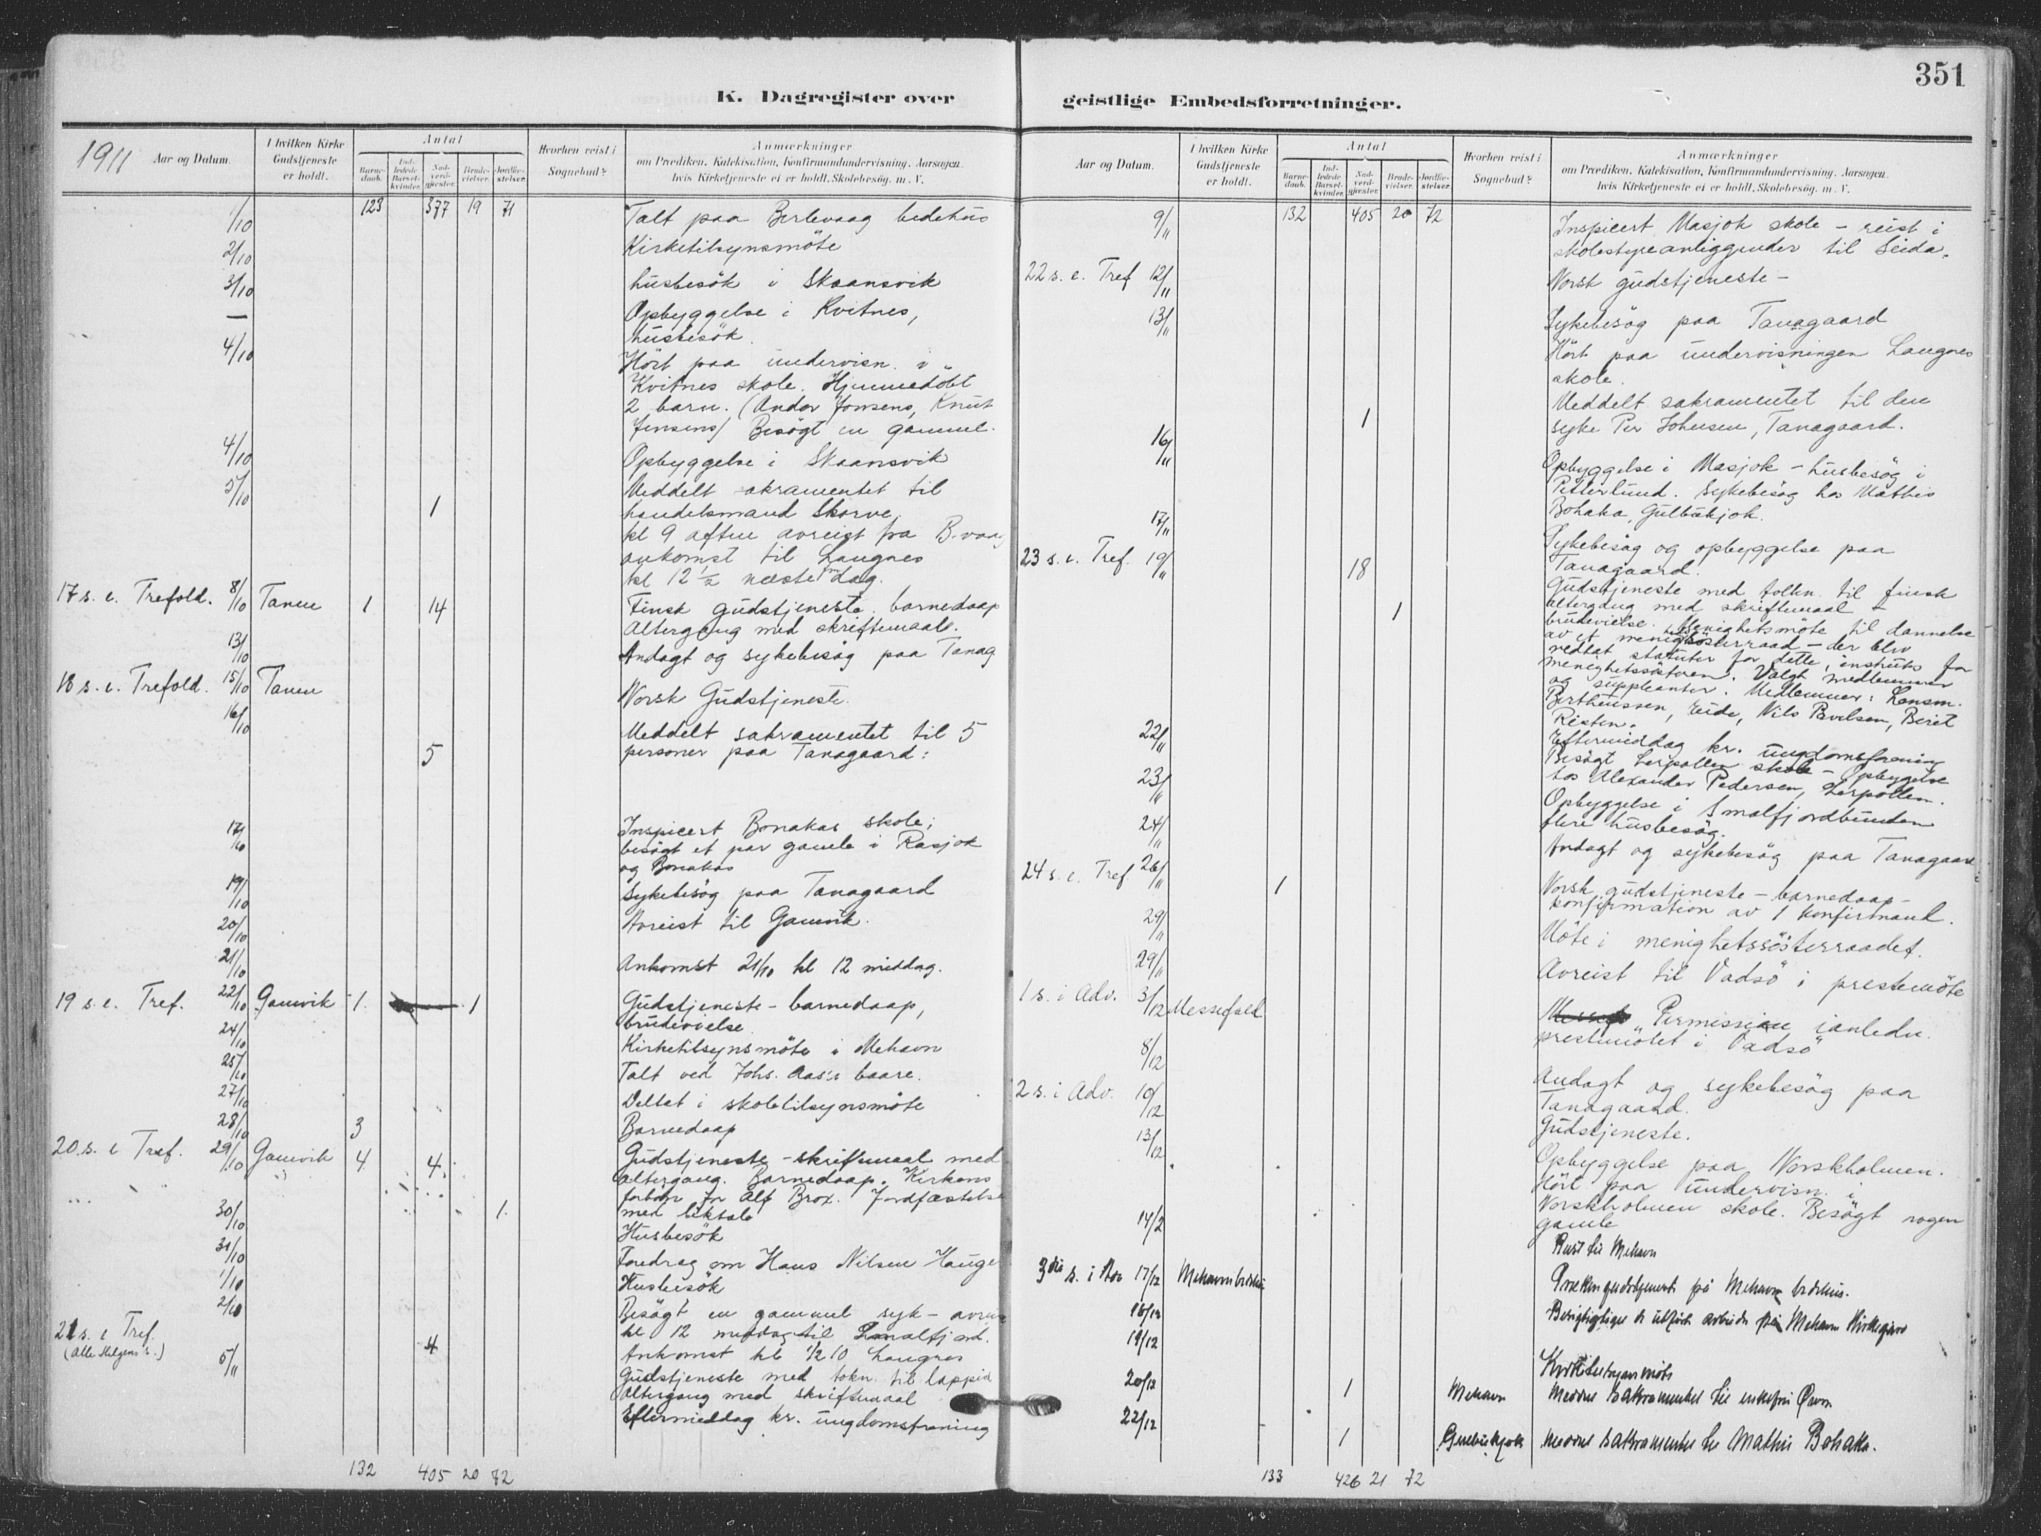 351
K. Dagregister over
geistlige Embedsforretninger.
1911
Aar og Datum.
I hvilken Kirke Gudstjeneste er holdt.
Antal
Barnedaab.
Indledede Barselkvinder.
Nadverdgjester.
Brudevielser.
Jordfæstelser.
Hvorhen reist i Sognebud?
Anmærkninger
om Prædiken, Katekisation, Konfirmandundervisning, Aarsagen,
hvis Kirketjeneste ei er holdt, Skolebesøg, m. V.
1/10 123 377 19 71 Talt paa Berlevaag bedehus
2/10 Kirketilsynsmöte
3/10 husbesök i Skaansvik
— Opbyggelse i Kvitnes,
husbesök.
4/10 Hört paa undervisn. i
Kvitnes skole. Hjemmedöbt
2 barn. (Andor Jonsens, Knut
Jensens) Besögt en gammel.
4/10 Opbyggelse i Skaansvik
5/10 1 Meddelt sakramentet til
handelsmand Skorve,
kl 9 aften avreist fra B-vaag
ankomst til Langnes
kl 12 1/2 næste dag.
17 s. e. Trefold. 8/10 Tanen 1 14 Finsk gudstjeneste. barnedaap
Altergang med skriftemaal.
13/10 Andagt og sykebesög paa Tanag
18 s. e. Trefold. 15/10 Tanen Norsk Gudstjeneste.
16/10 Meddelt sakramentet til 5
5 personer paa Tanagaard:
17/10 Inspicert Bonakas skole;
besögt et par gamle i Rasjok
og Bonakas
19/10 Sykebesög paa Tanagaard
20/10 Avreist til Gamvik.
21/10 Ankomst 21/10 kl 12 middag.
19 s. e. Tref. 22/10 Gamvik 1 1 Gudstjeneste - barnedaap,
brudevielse
24/10 Kirketilsynsmöte i Mehavn
25/10 Talt ved Johs. Aas's baare.
27/10 Deltat i skoletilsynsmöte
28/10 3 Barnedaap
20. s. e Tref. 29/10 Gamvik 4 4 Gudstjeneste - skriftemaal med
altergang. Barnedaap. Kirkens
forbön for Alf Brox. Jordfæstelse
1 med liktale
30/10 Husbesök
31/10 Foredrag om Hans Nilsen Hauge
1/10 Husbesök
2/10 Besögt en gammel syk - avreist
kl 12 middag til Smalfjord.
21 s. e Tref. (Alle Helgens s.) 5/11 4 Ankomst kl 1/2 10 Langnes
Gudstjeneste med tolkn. til lappisk
altergang med skriftemaal
Eftermiddag kr. ungdomsforening
132 405 20 72
Aar og Datum.
I hvilken Kirke Gudstjeneste er holdt.
Antal
Barnedaab.
Indledede Barselkvinder.
Nadverdgjester.
Brudevielser.
Jordfæstelser.
Hvorhen reist i Sognebud?
Anmærkninger
om Prædiken, Katekisation, Konfirmandundervisning, Aarsagen,
hvis Kirketjeneste ei er holdt, Skolebesøg, m. V.
9/11 132 405 20 72 Inspicert Masjok skole - reist i
skolestyreanliggender til Seida.
22 s. e. Tref 12/11 Norsk gudstjeneste -
13/11 Sykebesög paa Tanagaard
Hört paa undervisningen Langnes
skole.
1 Meddelt sakramentet til den
syke Per Johnsen, Tanagaard.
16/11 Opbyggelse i Masjok - husbesög i
Petterlund. Sykebesög hos Mathis
Bohaka, Gulbukjok.
17/11 Sykebesög og opbyggelse paa
Tanagaard.
23 s. e. Tref. 19/11 18 Gudstjeneste med tolkn. til finsk
altergang med skriftemaal +
1 brudevielse. Menighetsmöte til dannelse
av et menighetssösterraad - der blev
vedtat statuter for dette, instruks for
menighetssösteren. Valgt medlemmer
og suppleanter. Medlemmer: Lensm.
Bertheussen, Eide, Nils Pavelsen, Beret
Risten.
Eftermiddag kr. ungdomsforening
22/11 Besögt Lerpollen skole - Opbyggelse
hos Alexander Pedersen, Lerpollen.
23/11 Opbyggelse i Smalfjordbunden
flere husbesög.
24/11 Andagt og sykebesög paa Tanagaard
24 s. e. Tref 26/11 1 Norsk gudstjeneste - barnedaap -
konfirmation av 1 konfirmand.
29/11 Möte i menighetssösterraadet.
29/11 Avreist til Vadsö i prestemöte
1 s. i Adv. 3/12 Messefald Permission i anledn.
prestemötet i Vadsö
8/12 Andagt og sykebesög paa
Tanagaard.
2 s. i Adv. 10/12 Gudstjeneste.
13/12 Opbyggelse paa Norskholmen.
Hört paa undervisn. i
Norskholmen skole. Besögt nogen
gamle
14/2 Reist til Mehavn
3die s. i Adv 17/12 Mehavn bedehus Prækengudstjeneste på Mehavn bedehus.
18/12 Besigtigelse av utfört arbeide på Mehavn Kirkegård
19/12 Kirketilsynsmöte
20/12 1 Mehavn Meddelt sakramentet til enkefru Öien
22/12 1 Gulbukjok Meddelt sakramentet til Mathis Bohaka.
133 426 21 72